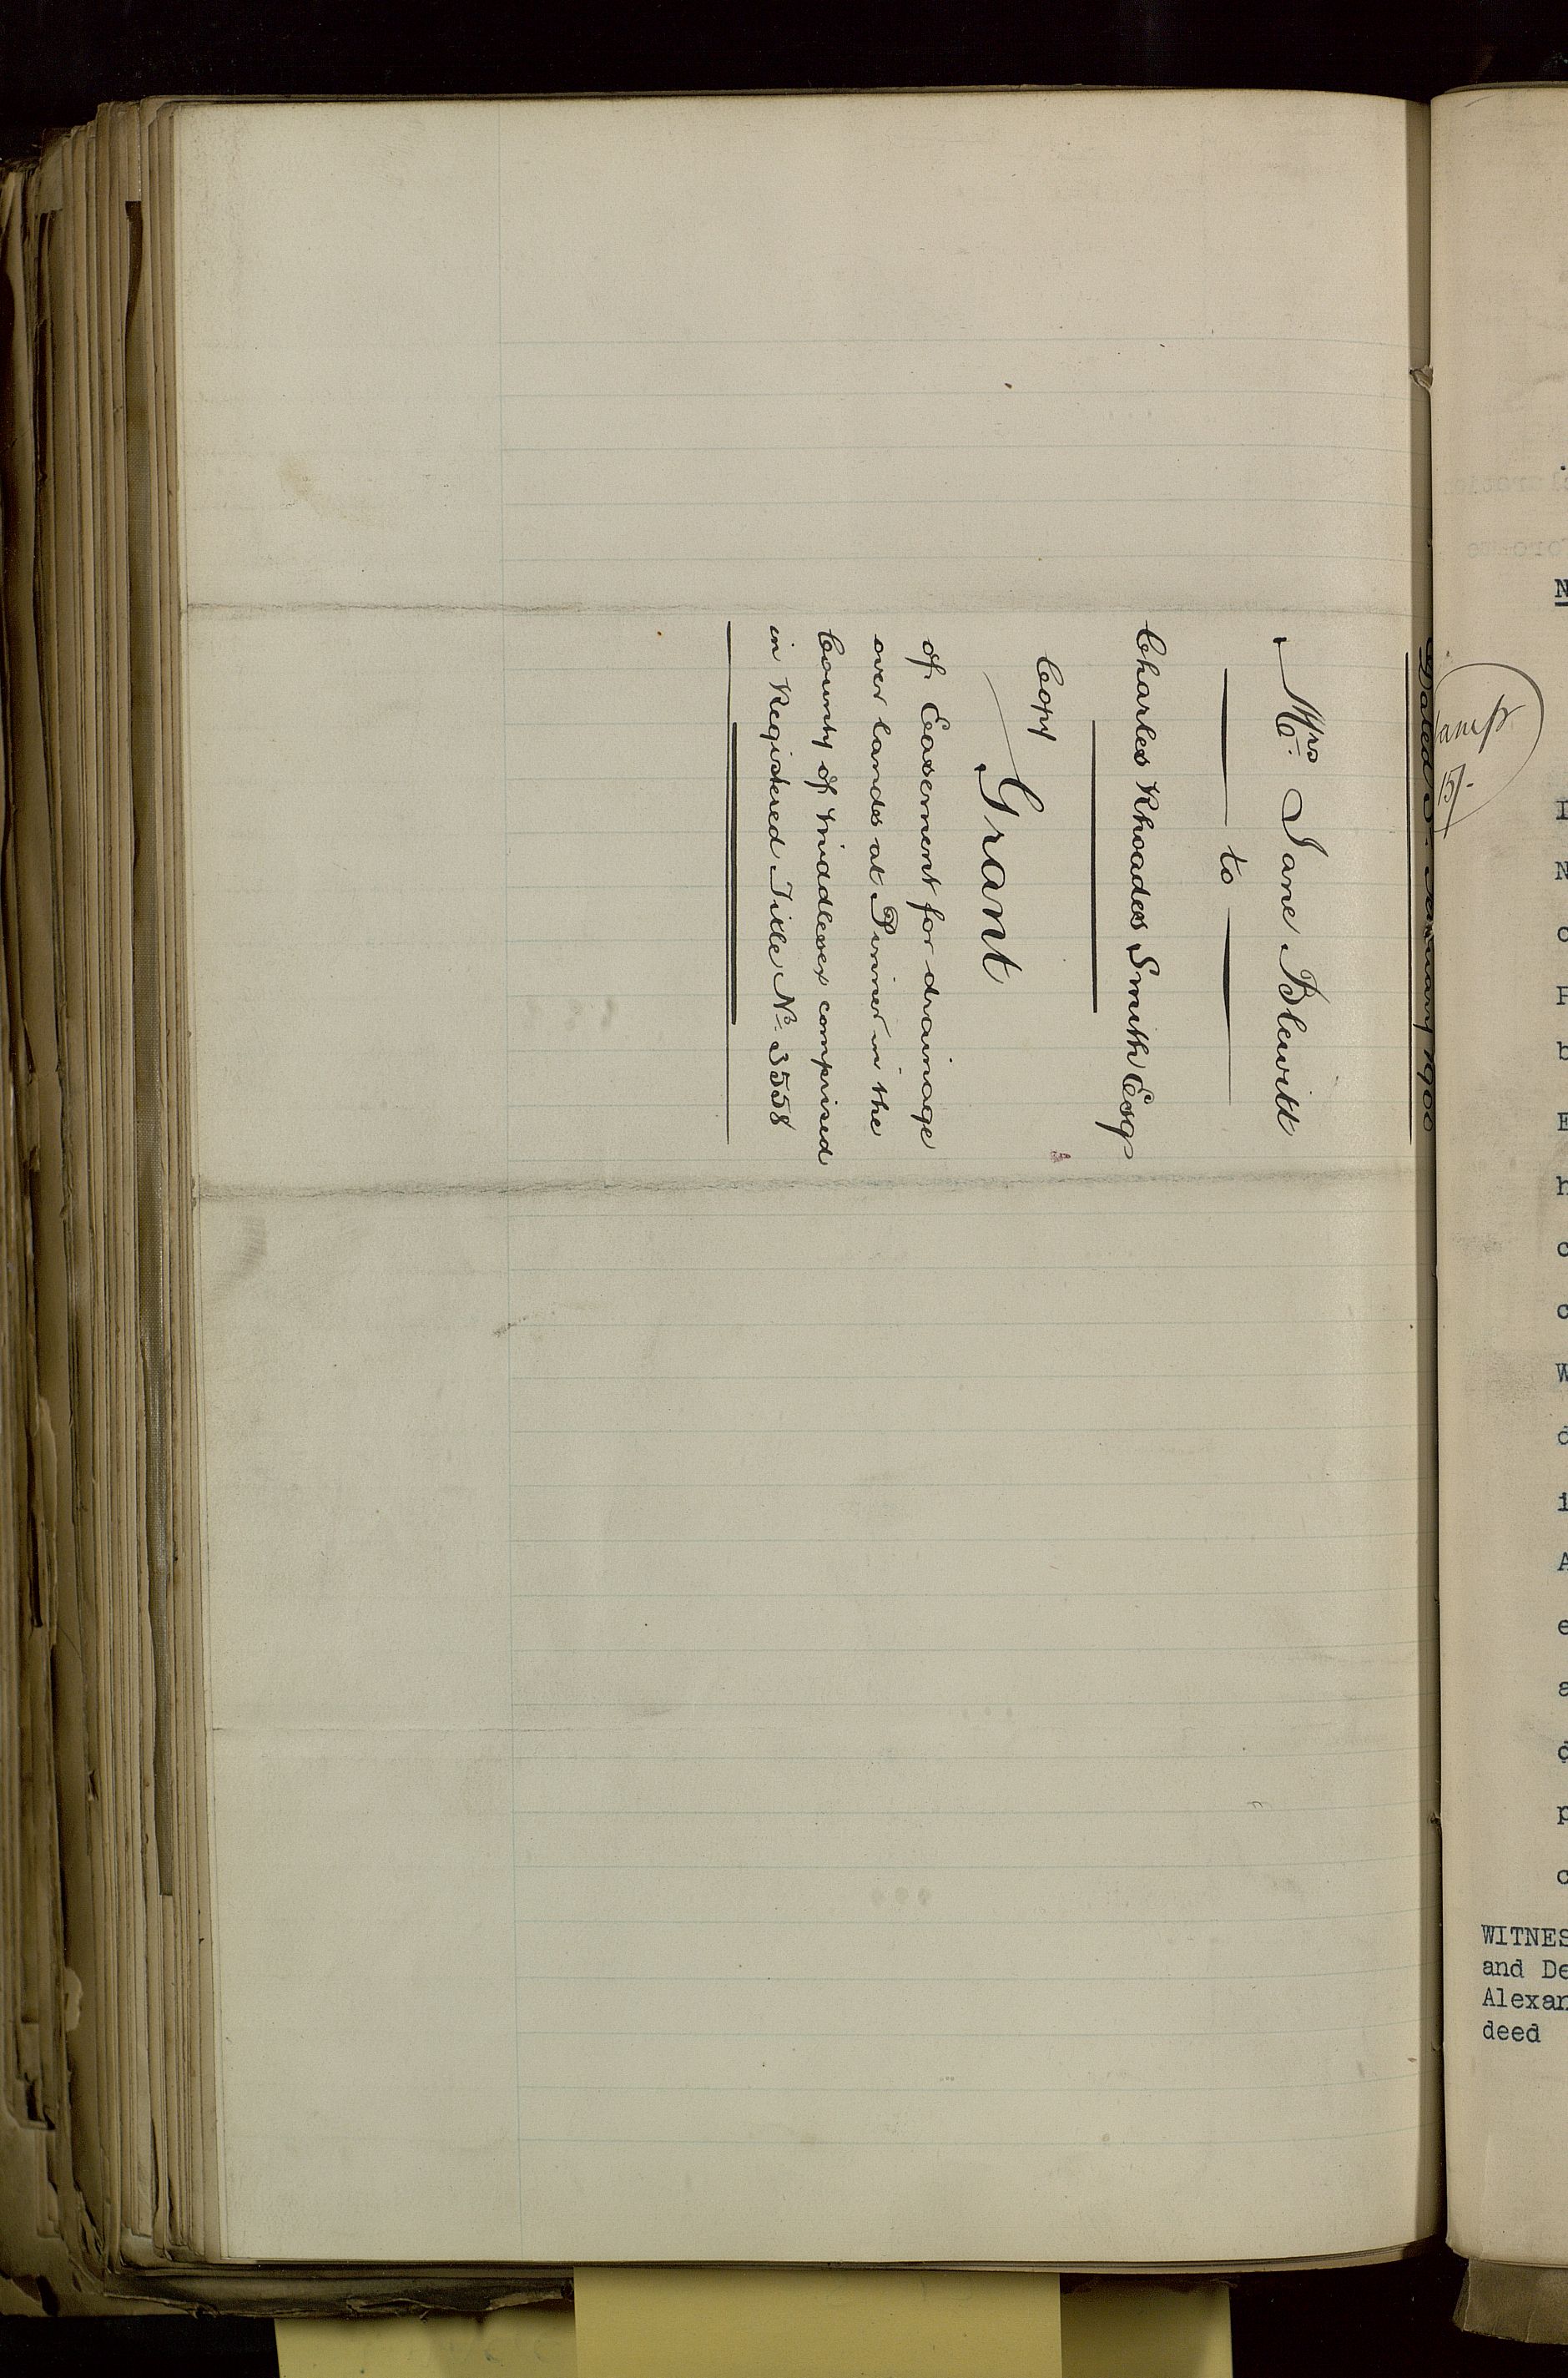 Dated January 1900
Mrs. Jane Blewitt
to
Charles Rhoades Smith Esq
Copy
Grant
of Easement for drainage
over lands at Pinner in the
County of Middlesex comprised
in Registered Title No. 3558
15/-
WITNES
and De
Alexan
deed